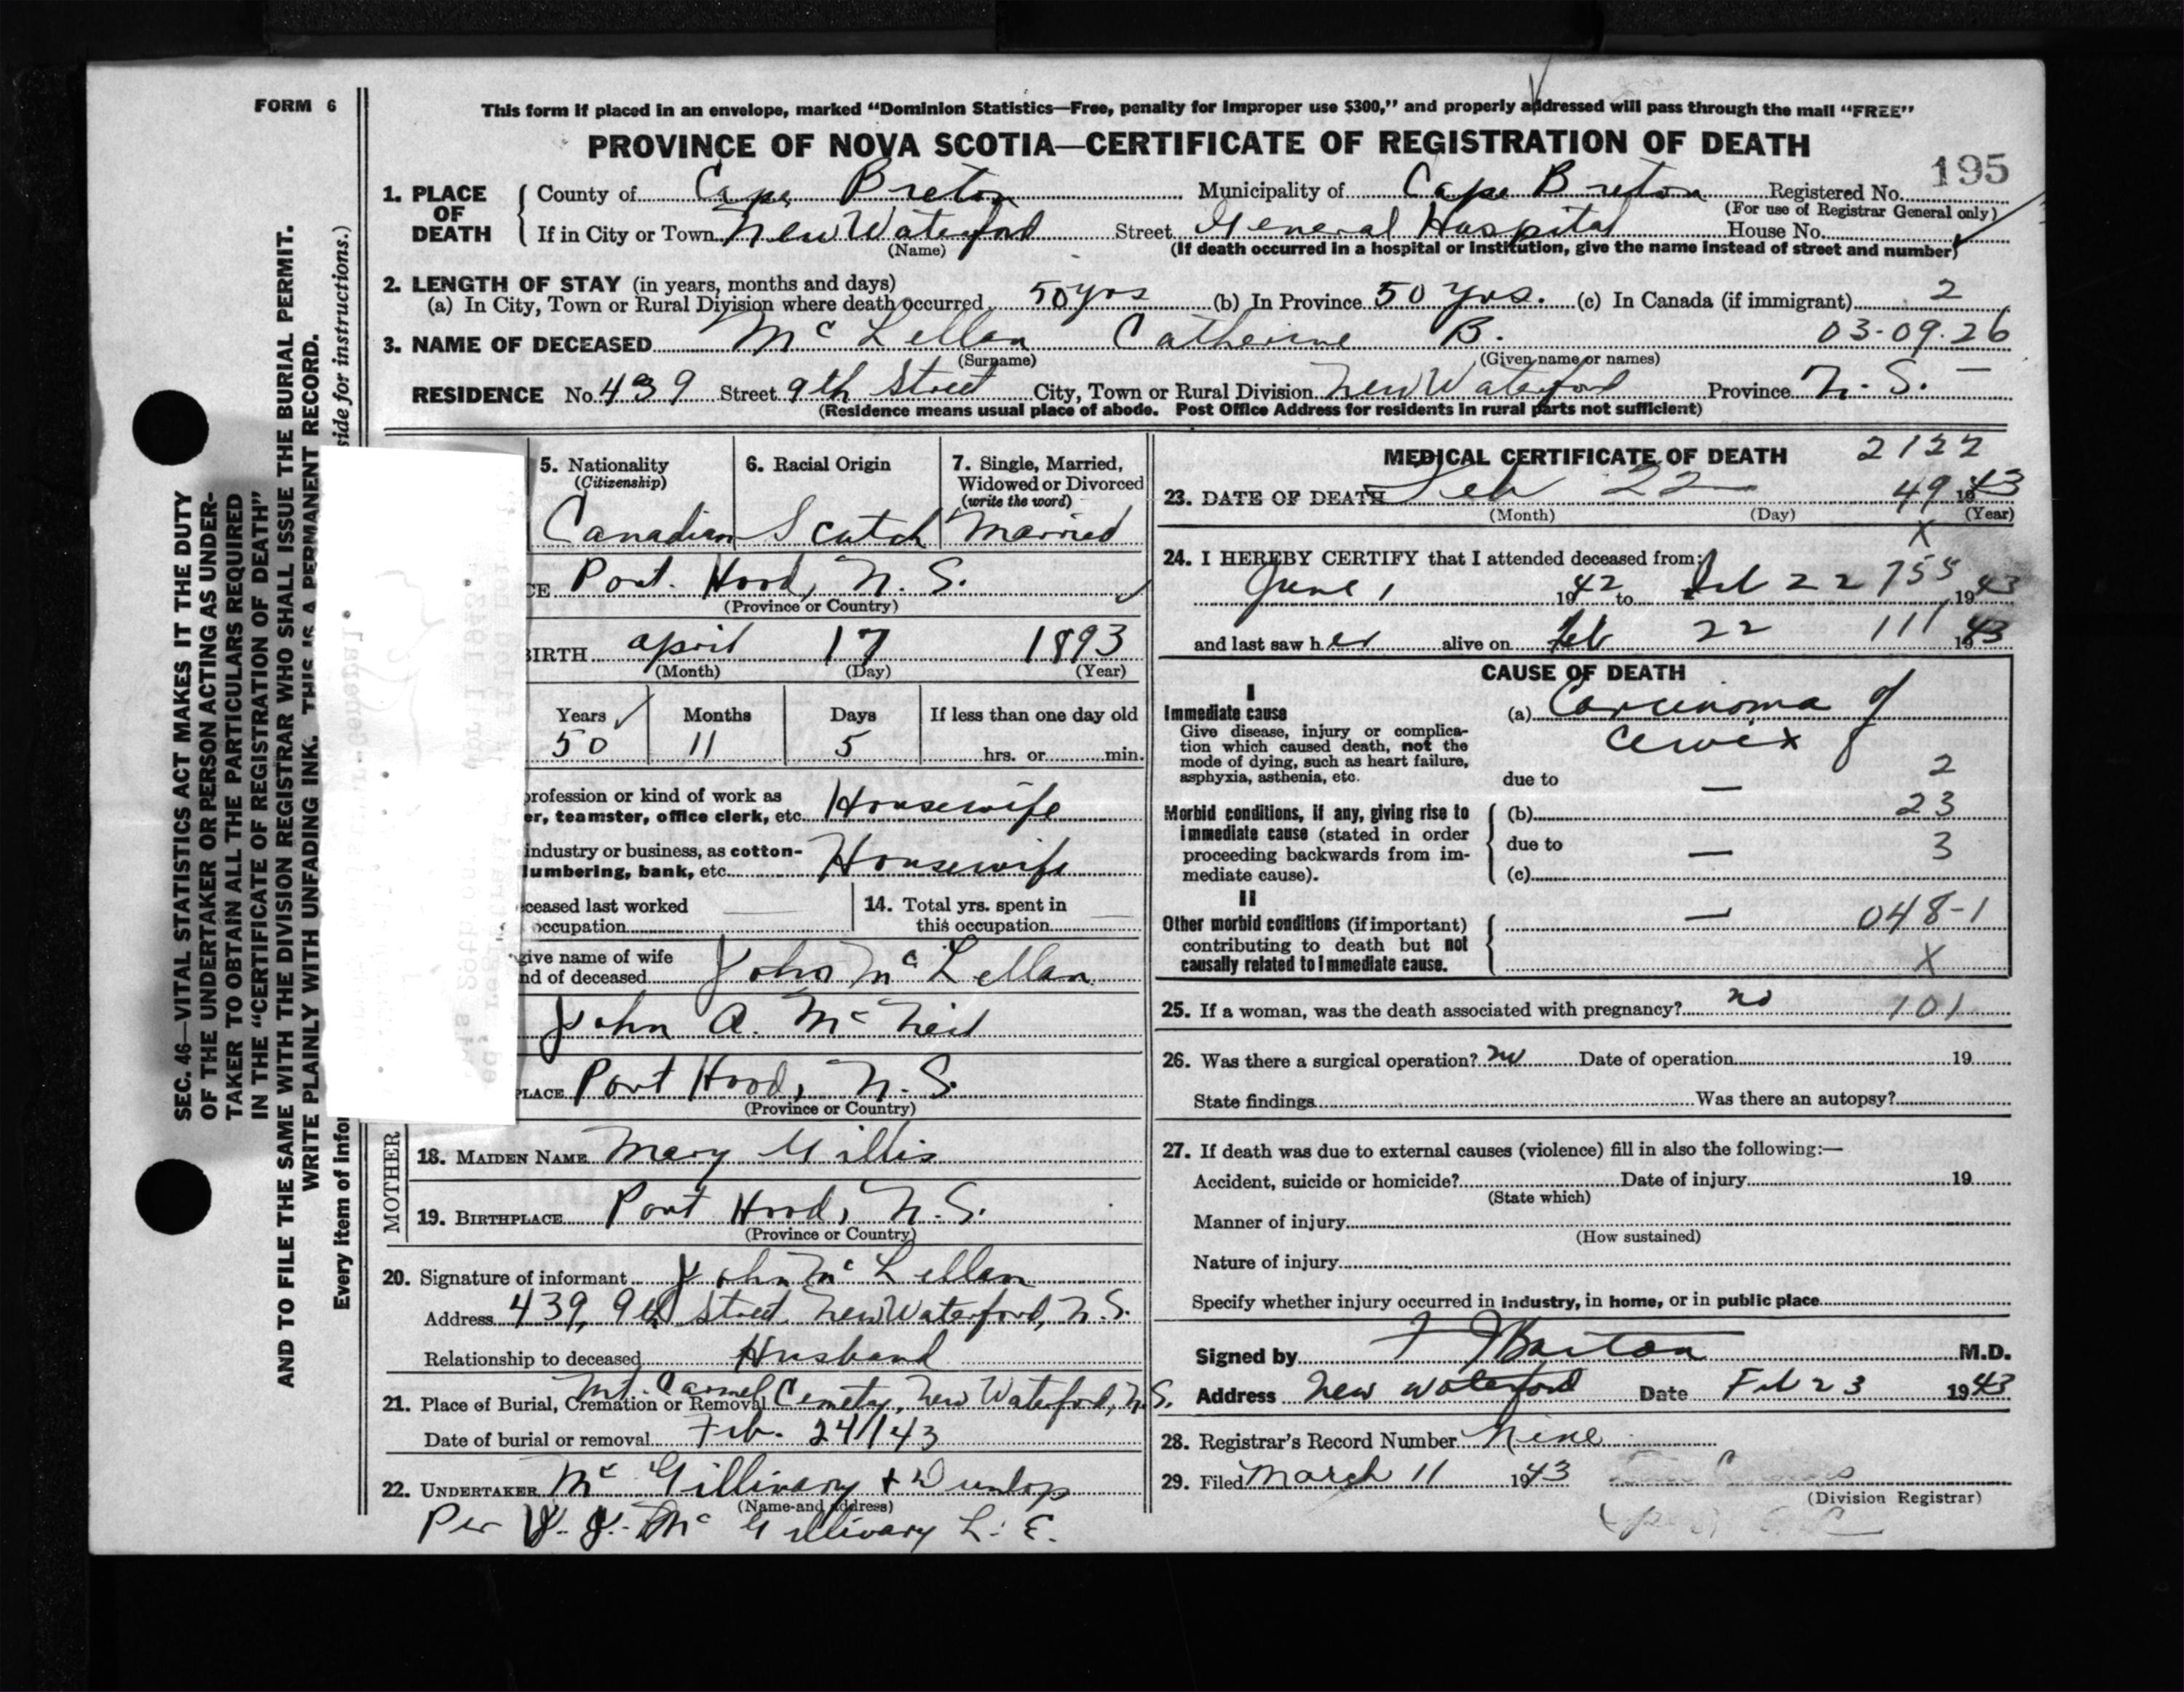 FORM 6
This form if placed in an envelope, marked “Dominion Statistics—Free, penalty for improper use $300,” and properly addressed will pass through the mail “FREE”
PROVINCE OF NOVA SCOTIA—CERTIFICATE OF REGISTRATION OF DEATH
195
1. PLACE OF DEATH
County of Cape Breton Municipality of Cape Breton Registered No.
(For use of Registrar General only)
If in City or Town New Waterford Street General Hospital House No.
(Name) (If death occurred in a hospital or institution, give the name instead of street and number)
2. LENGTH OF STAY (in years, months and days)
(a) In City, Town or Rural Division where death occurred 50 yrs (b) In Province 50 yrs. (c) In Canada (if immigrant) 2
3. NAME OF DECEASED Mc Lellan Catherine B. 03-09.26
(Surname) (Given name or names)
RESIDENCE No. 439 Street 9th Street City, Town or Rural Division New Waterford Province N. S. –
(Residence means usual place of abode. Post Office Address for residents in rural parts not sufficient)
SEC. 46—VITAL STATISTICS ACT MAKES IT THE DUTY
OF THE UNDERTAKER OR PERSON ACTING AS UNDER-
TAKER TO OBTAIN ALL THE PARTICULARS REQUIRED
IN THE “CERTIFICATE OF REGISTRATION OF DEATH”
AND TO FILE THE SAME WITH THE DIVISION REGISTRAR WHO SHALL ISSUE THE BURIAL PERMIT.
WRITE PLAINLY WITH UNFADING INK. THIS IS A PERMANENT RECORD.
Every item of infor
side for instructions.)
5. Nationality
(Citizenship)
Canadian
6. Racial Origin
Scotch
7. Single, Married,
Widowed or Divorced
(write the word)
Married
CE Port Hood, N. S.
(Province or Country)
BIRTH April 17 1893
(Month) (Day) (Year)
Years Months Days If less than one day old
50 11 5 hrs. or min.
profession or kind of work as
er, teamster, office clerk, etc. Housewife
industry or business, as cotton-
lumbering, bank, etc. Housewife
ceased last worked
occupation
14. Total yrs. spent in
this occupation
give name of wife
nd of deceased John Mc Lellan
John A. Mc Neil
PLACE Port Hood, N. S.
(Province or Country)
MOTHER
18. MAIDEN NAME Mary Gillis
19. BIRTHPLACE Port Hood, N. S.
(Province or Country)
20. Signature of informant John Mc Lellan
Address 439, 9th Street New Waterford, N.S.
Relationship to deceased Husband
21. Place of Burial, Cremation or Removal Mt. Carmel Cemetry, New Waterford, N.S.
Date of burial or removal Feb. 24/43
22. UNDERTAKER Mc Gillivary + Dunlop
(Name and address)
Per J. J. Mc Gillivary L. E.
MEDICAL CERTIFICATE OF DEATH 2122
23. DATE OF DEATH Feb 22 49 1943
(Month) (Day) (Year)
X
24. I HEREBY CERTIFY that I attended deceased from:
June 1 1942 to Feb 22 755 1943
and last saw her alive on Feb 22 111 1943
CAUSE OF DEATH
I
Immediate cause
Give disease, injury or complica-
tion which caused death, not the
mode of dying, such as heart failure,
asphyxia, asthenia, etc.
(a) Carcinoma of
Cervix
due to — 2
Morbid conditions, if any, giving rise to
immediate cause (stated in order
proceeding backwards from im-
mediate cause).
(b) 23
due to — 3
(c)
II
Other morbid conditions (if important)
contributing to death but not
causally related to immediate cause.
— 048-1
X
25. If a woman, was the death associated with pregnancy? no 101
26. Was there a surgical operation? no Date of operation 19
State findings Was there an autopsy?
27. If death was due to external causes (violence) fill in also the following:—
Accident, suicide or homicide? Date of injury 19
(State which)
Manner of injury
(How sustained)
Nature of injury
Specify whether injury occurred in industry, in home, or in public place
Signed by Barton M.D.
Address New Waterford Date Feb 23 1943
28. Registrar’s Record Number Nine
29. Filed March 11 1943
(Division Registrar)